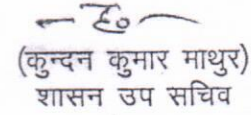 ह०
(कुन्दन कुमार माथुर)
शासन उप सचिव